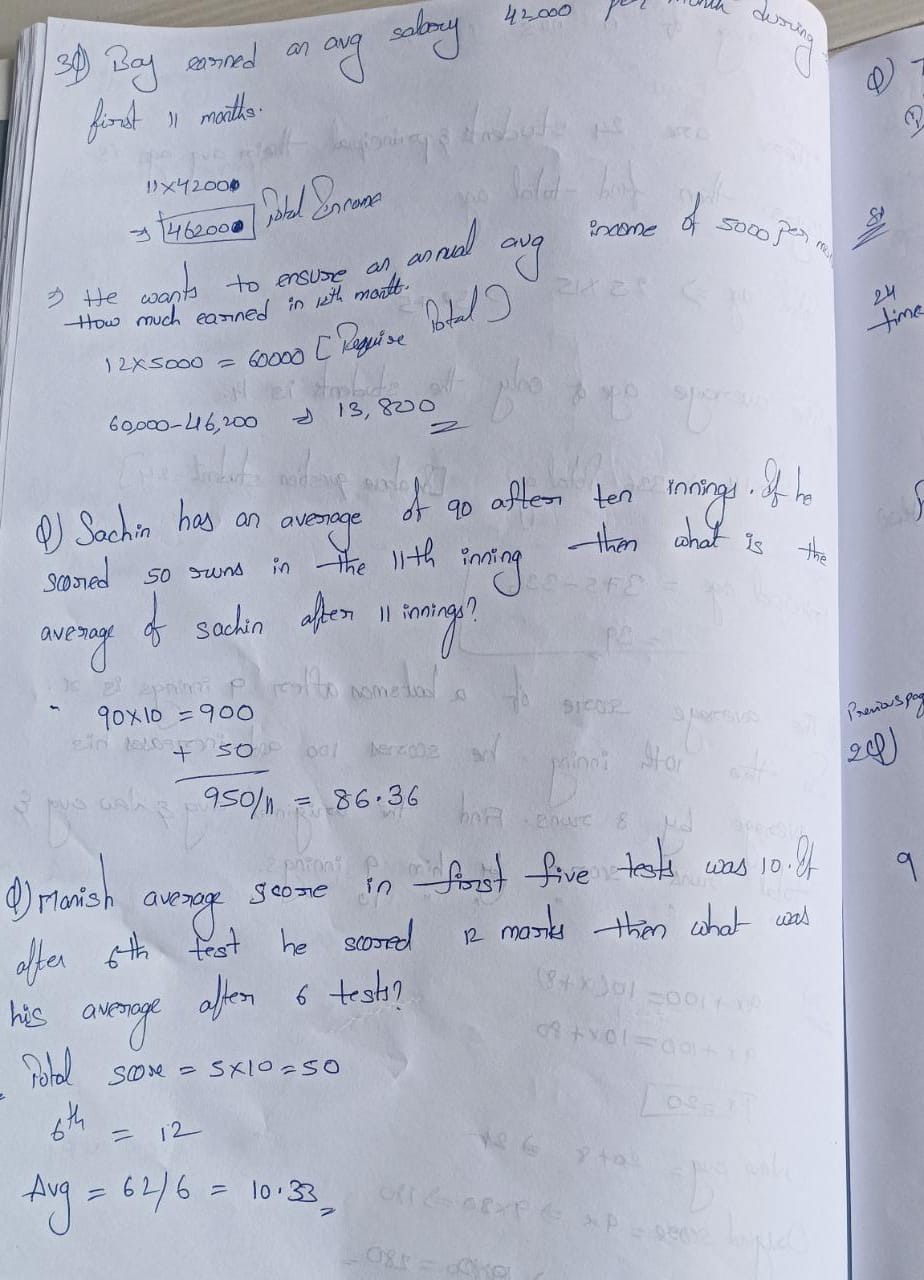 3Q) Boy earned an avg salary 42000 per month during
first 11 months.
11x42000
⇒ 462000 Total Income
⇒ He wants to ensure an annual avg income of 5000 per
How much earned in 12th month.
12x5000 = 60000 [Require Total]
60,000-46,200 ⇒ 13,800
Q) Sachin has an average of 90 after ten innings. If he
scored 50 runs in the 11th inning then what is the
average of sachin after 11 innings?
90x10 = 900
+ 50
950/11 = 86.36
Q) Manish average score in first five tests was 10. If
after 6th test he scored 12 marks then what was
his average after 6 tests?
Total score = 5x10 = 50
6th = 12
Avg = 62/6 = 10.33
Q)
24
time
Previous pag
2Q)
9